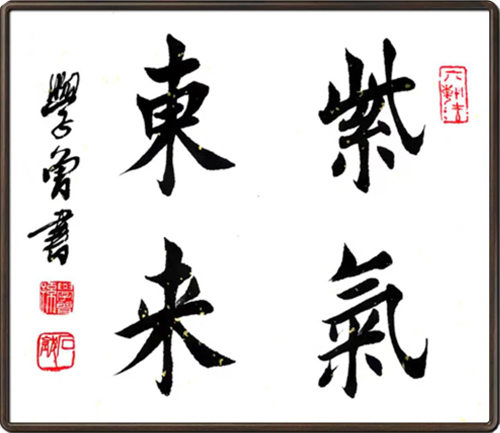 紫氣
東来
學曾書